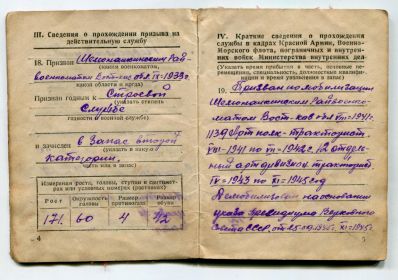 III. Сведения о прохождении призыва на
действительную службу
18. Признан Шемонаихинским Рай-
(каким военкоматом,
военкоматом Вост-каз обл. IX=1939г.
какой области и когда)
Признан годным к Строевой
(указать степень
службе
годности к военной службе)
и зачислен в Запас второй
(указать в какую
категории.
часть или в запас)
Измерения роста, головы, ступни в сантимет-
рах или условных номерах (ростовках)
Рост
Окружность головы
Размер противогаза
Размер обуви
171.
60
4
42
4
IV. Краткие сведения о прохождении
службы в кадрах Красной Армии, Военно-
Морского флота, пограничных и внутрен-
них войск Министерства внутренних дел
(Указать время прибытия в часть, основные пе-
ремещения, специальность, должностные квалифи-
кации и время увольнения в запас)
19. Призван по мобилизации
Шемонаихинским Райвоенко-
матом Вост-каз обл VIII=1941г.
полк-тракторист.
VIII=1941 по VI=1942г. 12 отдель-
ный арт дивизион тракторист
IV=1943 по XI=1945 год
Демобилизован на основании
указа президиума Верховного
Совета СССР, от 25.09.1945г. XI=1945г.
5